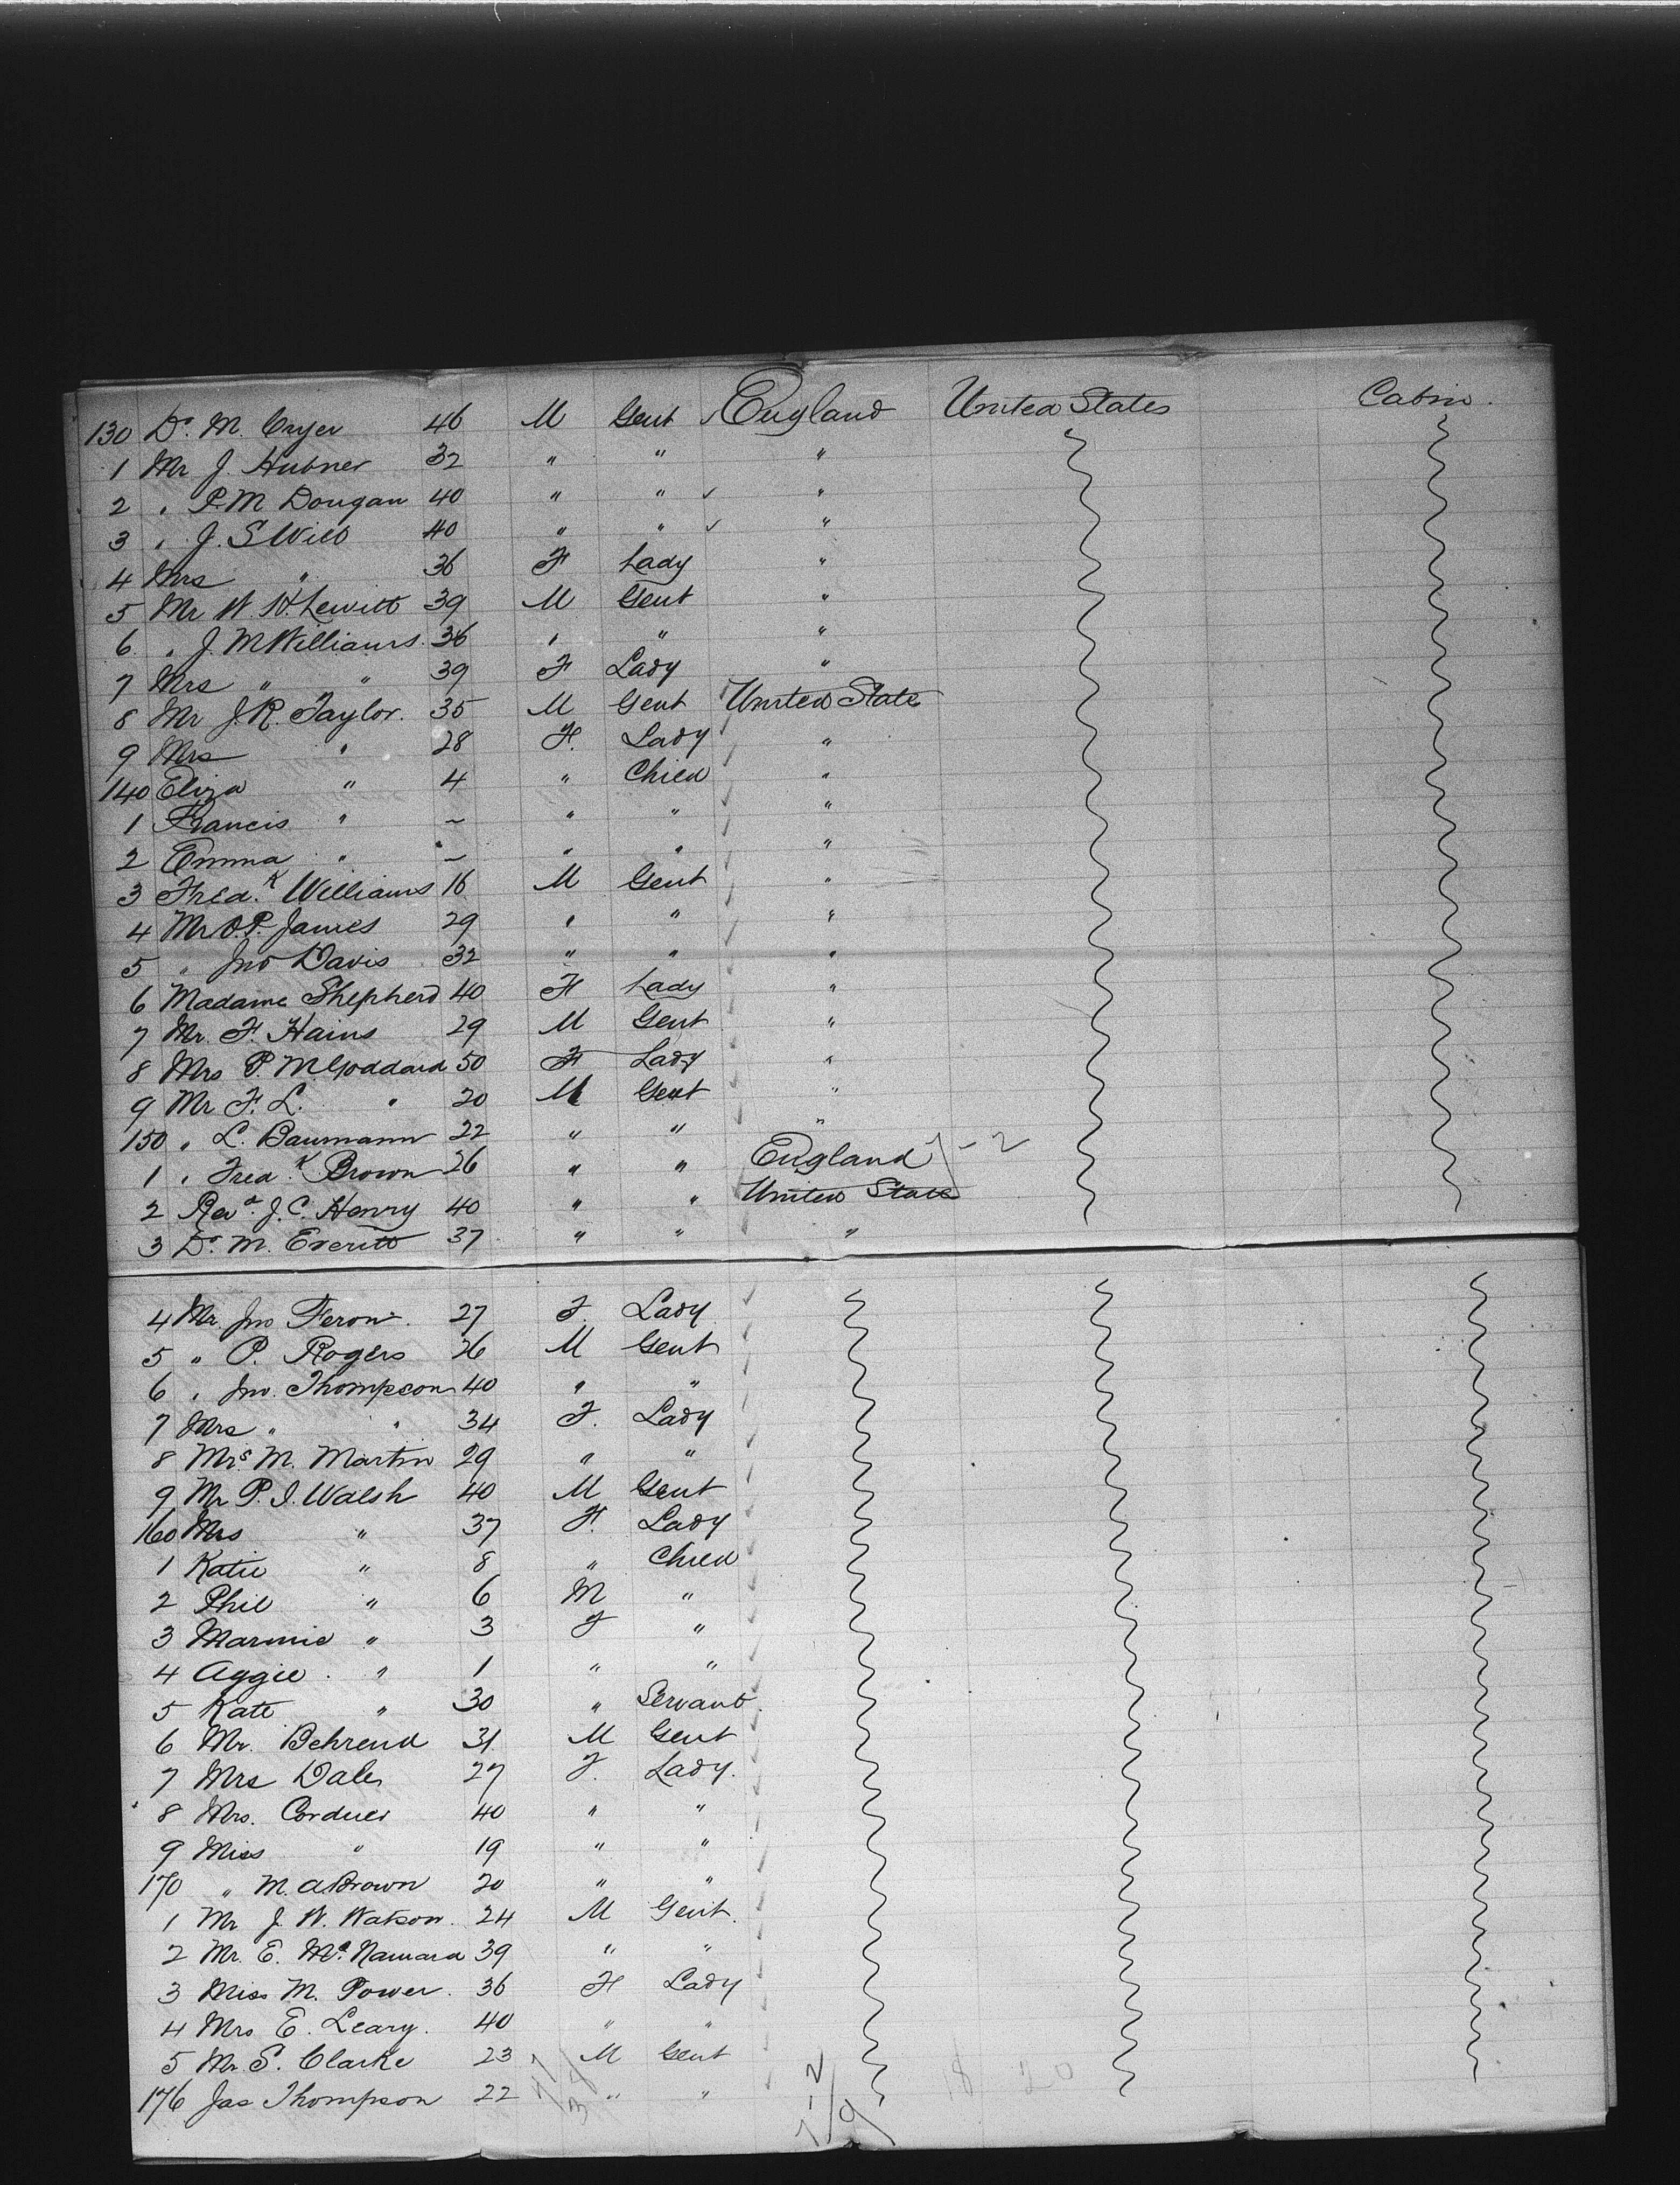 130 Dr. M. Cryer 46 M Gent ✓ England United States Cabin.
1 Mr J. Hubner 32 " " "
2 " P. M Dougan 40 " " ✓ "
3 " J. S Wild 40 " " ✓ "
4 Mrs " 36 F Lady "
5 Mr W. H. Hewitt 39 M Gent "
6 " J. M Williams. 36 " " "
7 Mrs " " 39 F Lady "
8 Mr J. R. Taylor. 35 M Gent United State
9 Mrs " 28 F. Lady "
140 Eliza " 4 " Child "
1 Francis " ~ " " "
2 Emma " ~ " " "
3 Fred.k Williams 16 M Gent "
4 Mr O. P. James 29 " " "
5 " Jno Davis 32 " " "
6 Madame Shepherd 40 F Lady "
7 Mr. F. Hains 29 M Gent "
8 Mrs P. M. Goddard 50 F Lady "
9 Mr F. L. " 20 M Gent "
150 " L. Baumann 22 " " "
1 " Fred.k Brown 26 " " England 1-2
2 Revd. J. C. Henry 40 " " United State
3 Dr. M. Everitt 37 " " "
4 Mr. Jno Feron. 27 F. Lady
5 " P. Rogers 26 M Gent
6 " Jno. Thompson 40 " "
7 Mrs " " 34 F. Lady
8 Mrs. M. Martin 29 " "
9 Mr P. J. Walsh 40 M Gent
160 Mrs " 37 F. Lady
1 Katie " 8 " Child
2 Phil " 6 M "
3 Mammie " 3 F "
4 Aggie. " 1 " "
5 Kate " 30 " Servant
6 Mr. Behrend 31 M Gent
7 Mrs Dale 27 F. Lady.
8 Mrs. Corduer 40 " "
9 Miss " 19 " "
170 " M. A Brown 20 " "
1 Mr J. W. Watson. 24 M Gent.
2 Mr. E. Mc. Namara 39 " "
3 Miss M. Power. 36 F Lady
4 Mrs E. Leary. 40 " "
5 Mr S. Clarke 23 M Gent
176 Jas Thompson 22 " "